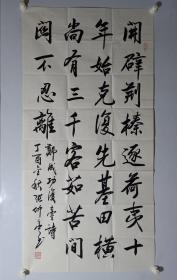 開辟荊榛逐荷夷十
年始克復先基田橫
尚有三千客茹苦間
關不忍離
鄭成功復臺詩
丁酉金秋